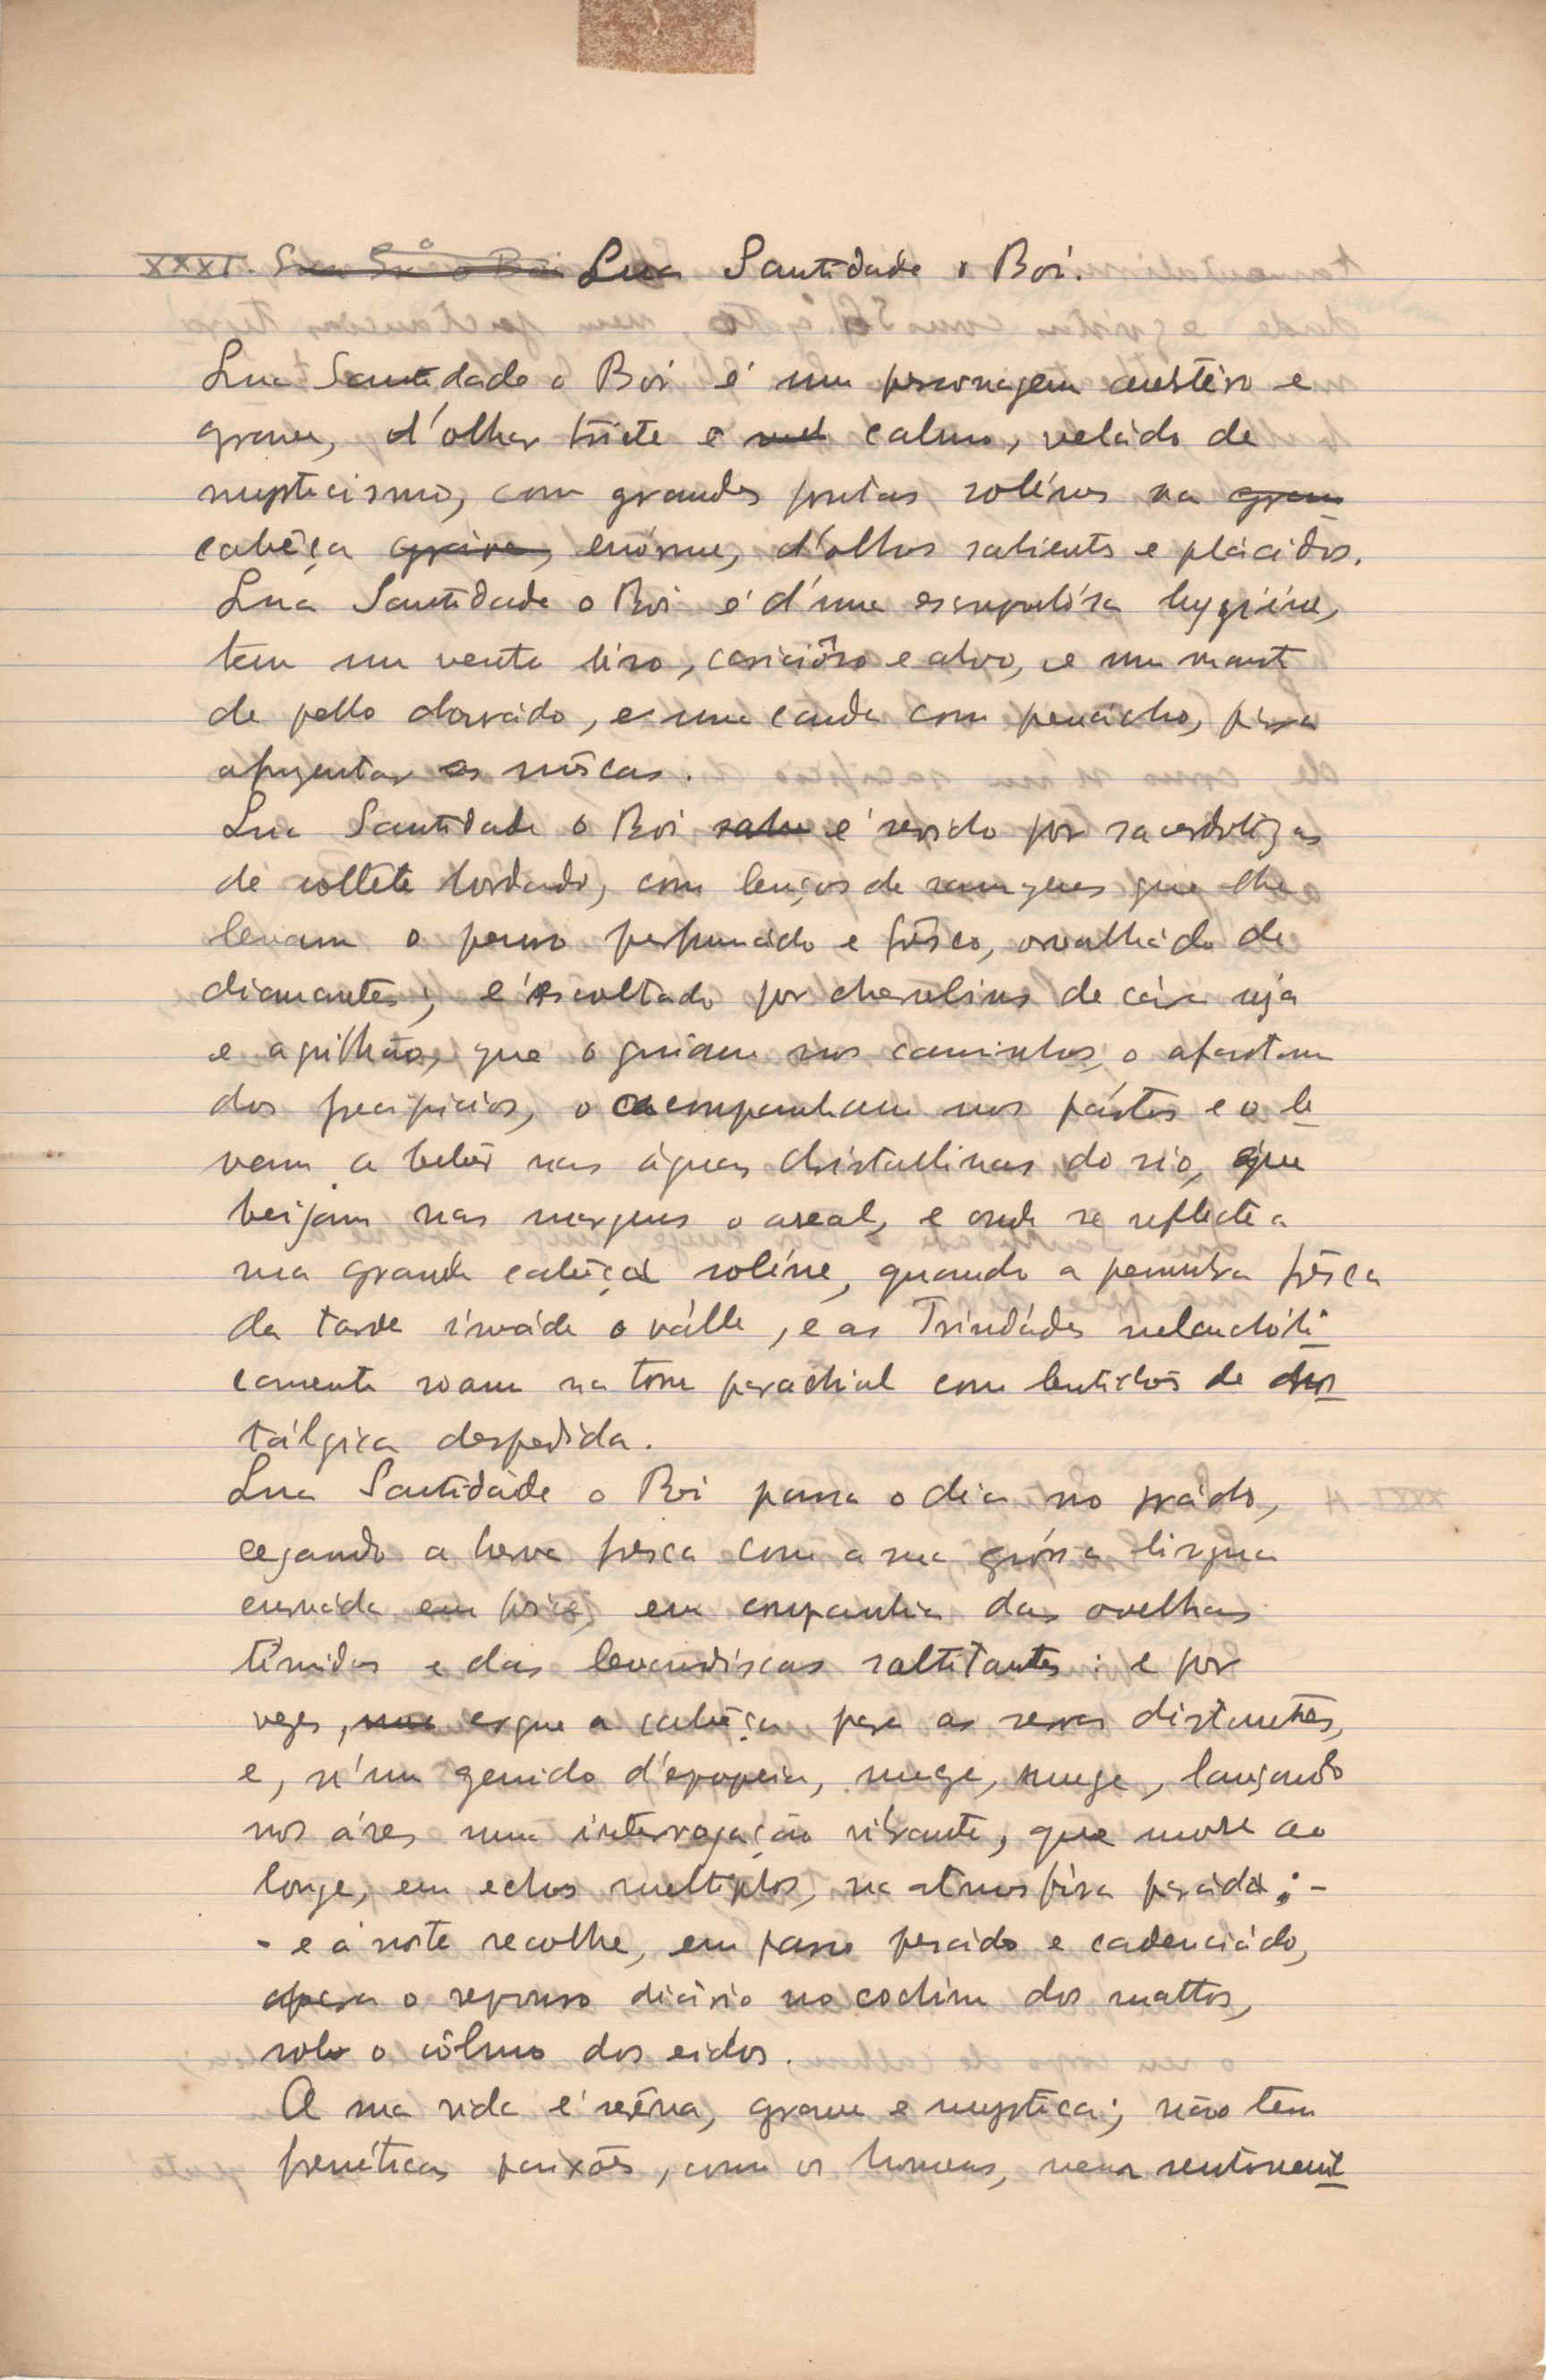 XXXI. Sua Sr.ª o Boi Sua Santidade o Boi.
Sua Santidade o Boi é um personagem austéro e
grave, d'olhar triste e calmo, veládo de
mysticismo, com grandes pontas solénes na gran
cabêça grave, enórme, d'olhos salientes e plácidos.
Sua Santidade o Boi é d'uma escrupulósa hygiéne,
tem um ventre liso, cariciôso e alvo, e um manto
de pello dourádo, e uma cauda com penácho, para
afugentar as môscas.
Sua Santidade o Boi sabe é servido por sacerdotizas
de collête bordado, com lenços de ramagens que lhe
levam o penso perfumádo e frêsco, orvalhádo de
diamantes; é escoltado por cherubins de cára suja
e aguilhão, que o guiam nos caminhos, o afastam
dos precipicios, o acompanham nos pástos e o le
vam a bebêr nas águas christallinas do rio, que
beijam nas margens o areal, e onde se reflecte a
sua grande cabêça soléne, quando a penumbra frêsca
da tarde inváde o válle, e as Trindádes melanchóli
camente soam na torre parochial com lentidões de nos
tálgica despedida.
Sua Santidáde o Boi passa o dia no prádo,
cegando a herva fresca com a sua gróssa lingua
curváda em foice, em companhia das ovelhas
tímidas e das lavandíscas saltitantes: e por
vezes, ergue a cabêça para as serras distantes,
e, n'um gemido d'epopeia, muge, muge, lançando
nos áres uma interrogação vibrante, que morre ao
longe, em echos multiplos, na atmosféra paráda; -
- e á noite recolhe, em passo pesádo e cadenciádo,
para o repouso diário no cochim dos mattos,
sob o côlmo dos eidos.
A sua vida é seréna, grave e mystica; não tem
frenéticas paixões, como os homens, nem sentiment